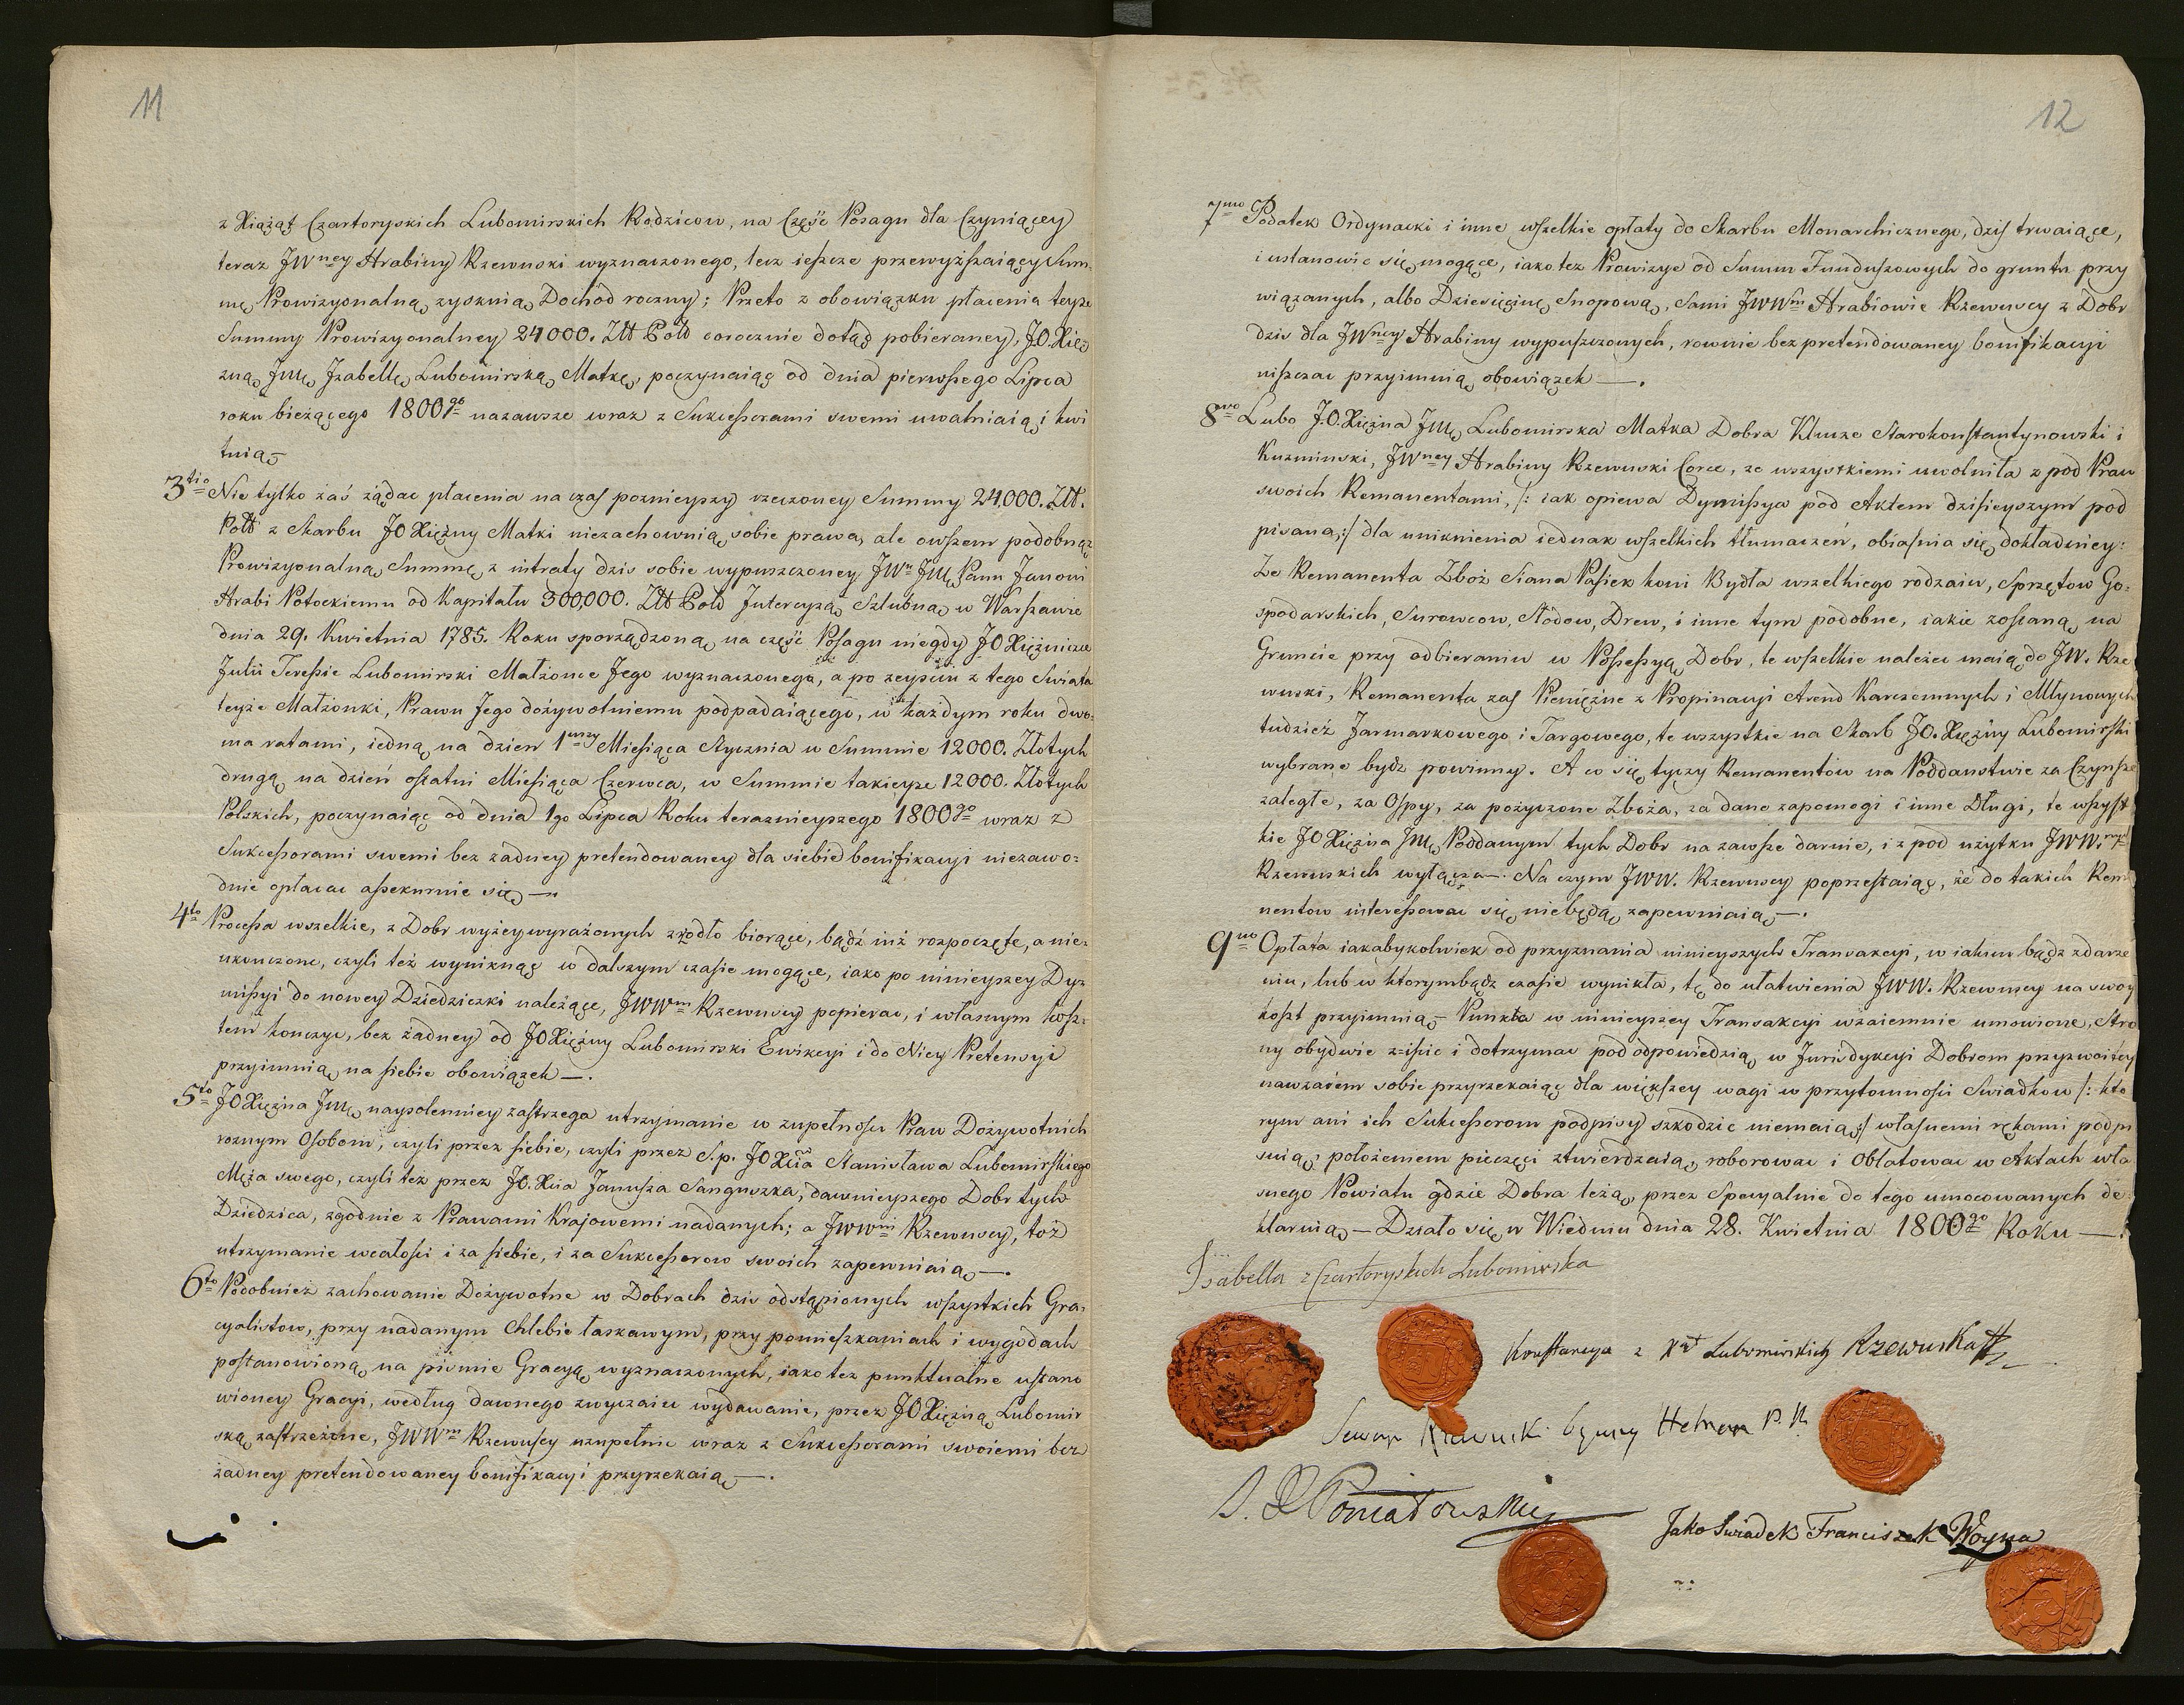 11
z Xiążąt Czartoryskich Lubomirskich Rodzicow, na Część Posagu dla Czyniącey
teraz JWney Hrabiny Rzewuski wyznaczonego, lecz ieszcze przewyższaiący Sum-
mę Prowizyonalną zyskuią Dochod roczny; Przeto z obowiązku płacenia teyże
Summy Prowizyonalney 24000. Złt Pold corocznie dotąd pobieraney, JO. Xięż
ną Jmę Izabellę Lubomirską Matkę, poczynaiąc od dnia pierwszego Lipca
roku bieżącego 1800go nazawsze wraz z Sukcessorami swemi uwalniaią i kwi
tuią
3tio Nie tylko zaś żądac płacenia na czas poznieyszy rzeczoney Summy 24,000. Złt.
Pold z Skarbu JO Xiężny Matki niezachowuią sobie prawa, ale owszem podobnąż
Prowizyonalną Summę z intraty dzis sobie wypuszczoney JWu Jmę Panu Janowi
Hrabi Potockiemu od Kapitału 300,000. Złt Pold Intercyzą Szlubną w Warszawie
dnia 29. Kwietnia 1785. Roku sporządzoną na część Posagu niegdy JO Xiężniczce
Julii Teressie Lubomirski Małżonce Jego wyznaczonego, a po zeysciu z tego Swiata
teyże Małżonki, Prawu Jego dożywotniemu podpadaiącego, w każdym roku dwo-
ma ratami, iedną na dzien 1wszy Miesiąca Stycznia w Summie 12000. Złotych
drugą na dzień ostatni Miesiąca Czerwca, w Summie takieyże 12000. Złotych
Polskich, poczynaiąc od dnia 1go Lipca Roku teraznieyszego 1800go wraz z
Sukcessorami swemi bez żadney pretendowaney dla siebie bonifikacyi niezawo-
dnie opłacac assekuruie się —
4to Processa wszelkie, z Dobr wyżeywyrażonych zrodło biorące, bądź iuż rozpoczęte, a nie-
ukonczone, czyli też wyniknąc w dalszym czasie mogące, iako po ninieyszey Dy-
missyi do nowey Dziedziczki należące, JWWni Rzewuscy popierac, i własnym kosz-
tem konczyc, bez żadney od JO Xiężny Lubomirski Ewikcyi i do Niey Pretensyi
przyimuią na siebie obowiązek —.
5to JO Xiężna Jmę naysolenniey zastrzega utrzymanie w zupełnosci Praw Dożywotnich
roznym Osobom, czyli przez siebie, czyli przez S.p. JO Xcia Stanisława Lubomirskiego
Męża swego, czyli też przez JO. Xcia Janusza Sanguszka, dawnieyszego Dobr tych
Dziedzica, zgodnie z Prawami Krajowemi nadanych; a JWWni Rzewuscy, toż
utrzymanie wcałości i za siebie, i za Sukcessorow swoich zapewniaią —.
6to Podobnież zachowanie Dożywotne w Dobrach dzis odstąpionych wszystkich Gra-
cyalistow, przy nadanym Chlebie łaskawym, przy pomieszkaniach i wygodach
postanowioną na pismie Gracyą wyznaczonych, iako też punktualne ustano
wioney Gracyi, według dawnego zwyczaiu wydawanie, przez JO Xiężną Lubomir
ską zastrzeżone, JWWni Rzewuscy uzupełnic wraz z Sukcessorami swoiemi bez
żadney pretendowaney bonifikacyi przyrzekaią —.
12
7mo Podatek Ordynacki i inne wszelkie opłaty do Skarbu Monarchicznego, dzis trwaiące,
i ustanowic się mogące, iako tez Prowizye od Summ Funduszowych do gruntu przy
wiązanych, albo Dziesięcinę Snopową, sami JWWni Hrabiowie Rzewuscy z Dobr
dzis dla JWney Hrabiny wypuszczonych, rownie bez pretendowaney bonifikacyi
uiszczac przyimuią obowiązek —.
8vo Lubo J.O. Xiężna Jmę Lubomirska Matka Dobra Klucze Starokonstantynowski i
Kuzminski, JWney Hrabiny Rzewuski Corce, ze wszystkiemi uwolniła z pod Praw
swoich Remanentami, /: iak opiewa Dymissya pod Aktem dzisieyszym pod
pisana,:/ dla uniknienia iednak wszelkich tłumaczeń, obiasnia się dokładniey:
Że Remanenta Zboż Siana Pasiek koni Bydła wszelkiego rodzaiu, Sprzętow Go-
spodarskich, Surowcow, Słodow, Drew, i inne tym podobne, iakie zostaną na
Gruncie przy odbieraniu w Possessyą Dobr, te wszelkie należec maią do JW. Rze
wuski, Remanenta zas Pieniężne z Propinacyi Arend Karczemnych i Młynowych
tudzież Jarmarkowego i Targowego, te wszystkie na Skarb JO. Xiężny Lubomirski
wybrane bydz powinny. A co się tyczy Remanentow na Poddanstwie za Czynsze
zaległe, za Ospy, za pożyczone Zboża, za dane zapomogi i inne Długi, te wszyst
kie JO Xiężna Jmę Poddanym tych Dobr na zawsze daruie, i z pod użytku JWW.nych
Rzewuskich wyłącza —. Na czym JWW. Rzewuscy poprzestaiąc, że do takich Rema
nentow interessowac się niebędą zapewniaią —.
9no Opłata iakabykolwiek od przyznania ninieyszych Transakcyi, w iakim bądz zdarze
niu, lub w ktorymbądz czasie wynikła, tę do ułatwienia JWW. Rzewuscy na swoy
koszt przyimuią — Punkta w ninieyszey Transakcyi wzaiemnie umowione, Stro
ny obydwie ziscic i dotrzymac pod odpowiedzią w Jurisdykcyi Dobrom przyzwoitey
nawzaiem sobie przyrzekaiąc dla większey wagi w przytomnosci Swiadkow /: kto
rym ani ich Sukcessorom podpisy szkodzic niemaią:/ własnemi rękami podpi
suią, położeniem pieczęci ztwierdzaią, roborowac i Oblatowac w Aktach wła
snego Powiatu gdzie Dobra leżą, przez Specyalnie do tego umocowanych de-
klaruią — Działo się w Wiedniu dnia 28. Kwietnia 1800go Roku —.
Isabella z Czartoryskich Lubomirska
Konstancya z Xt Lubomirskich Rzewuska
Seweryn Rzewuski Hetman P. K.
S. X Poniatowski
Jako Swiadek Franciszek Woyna